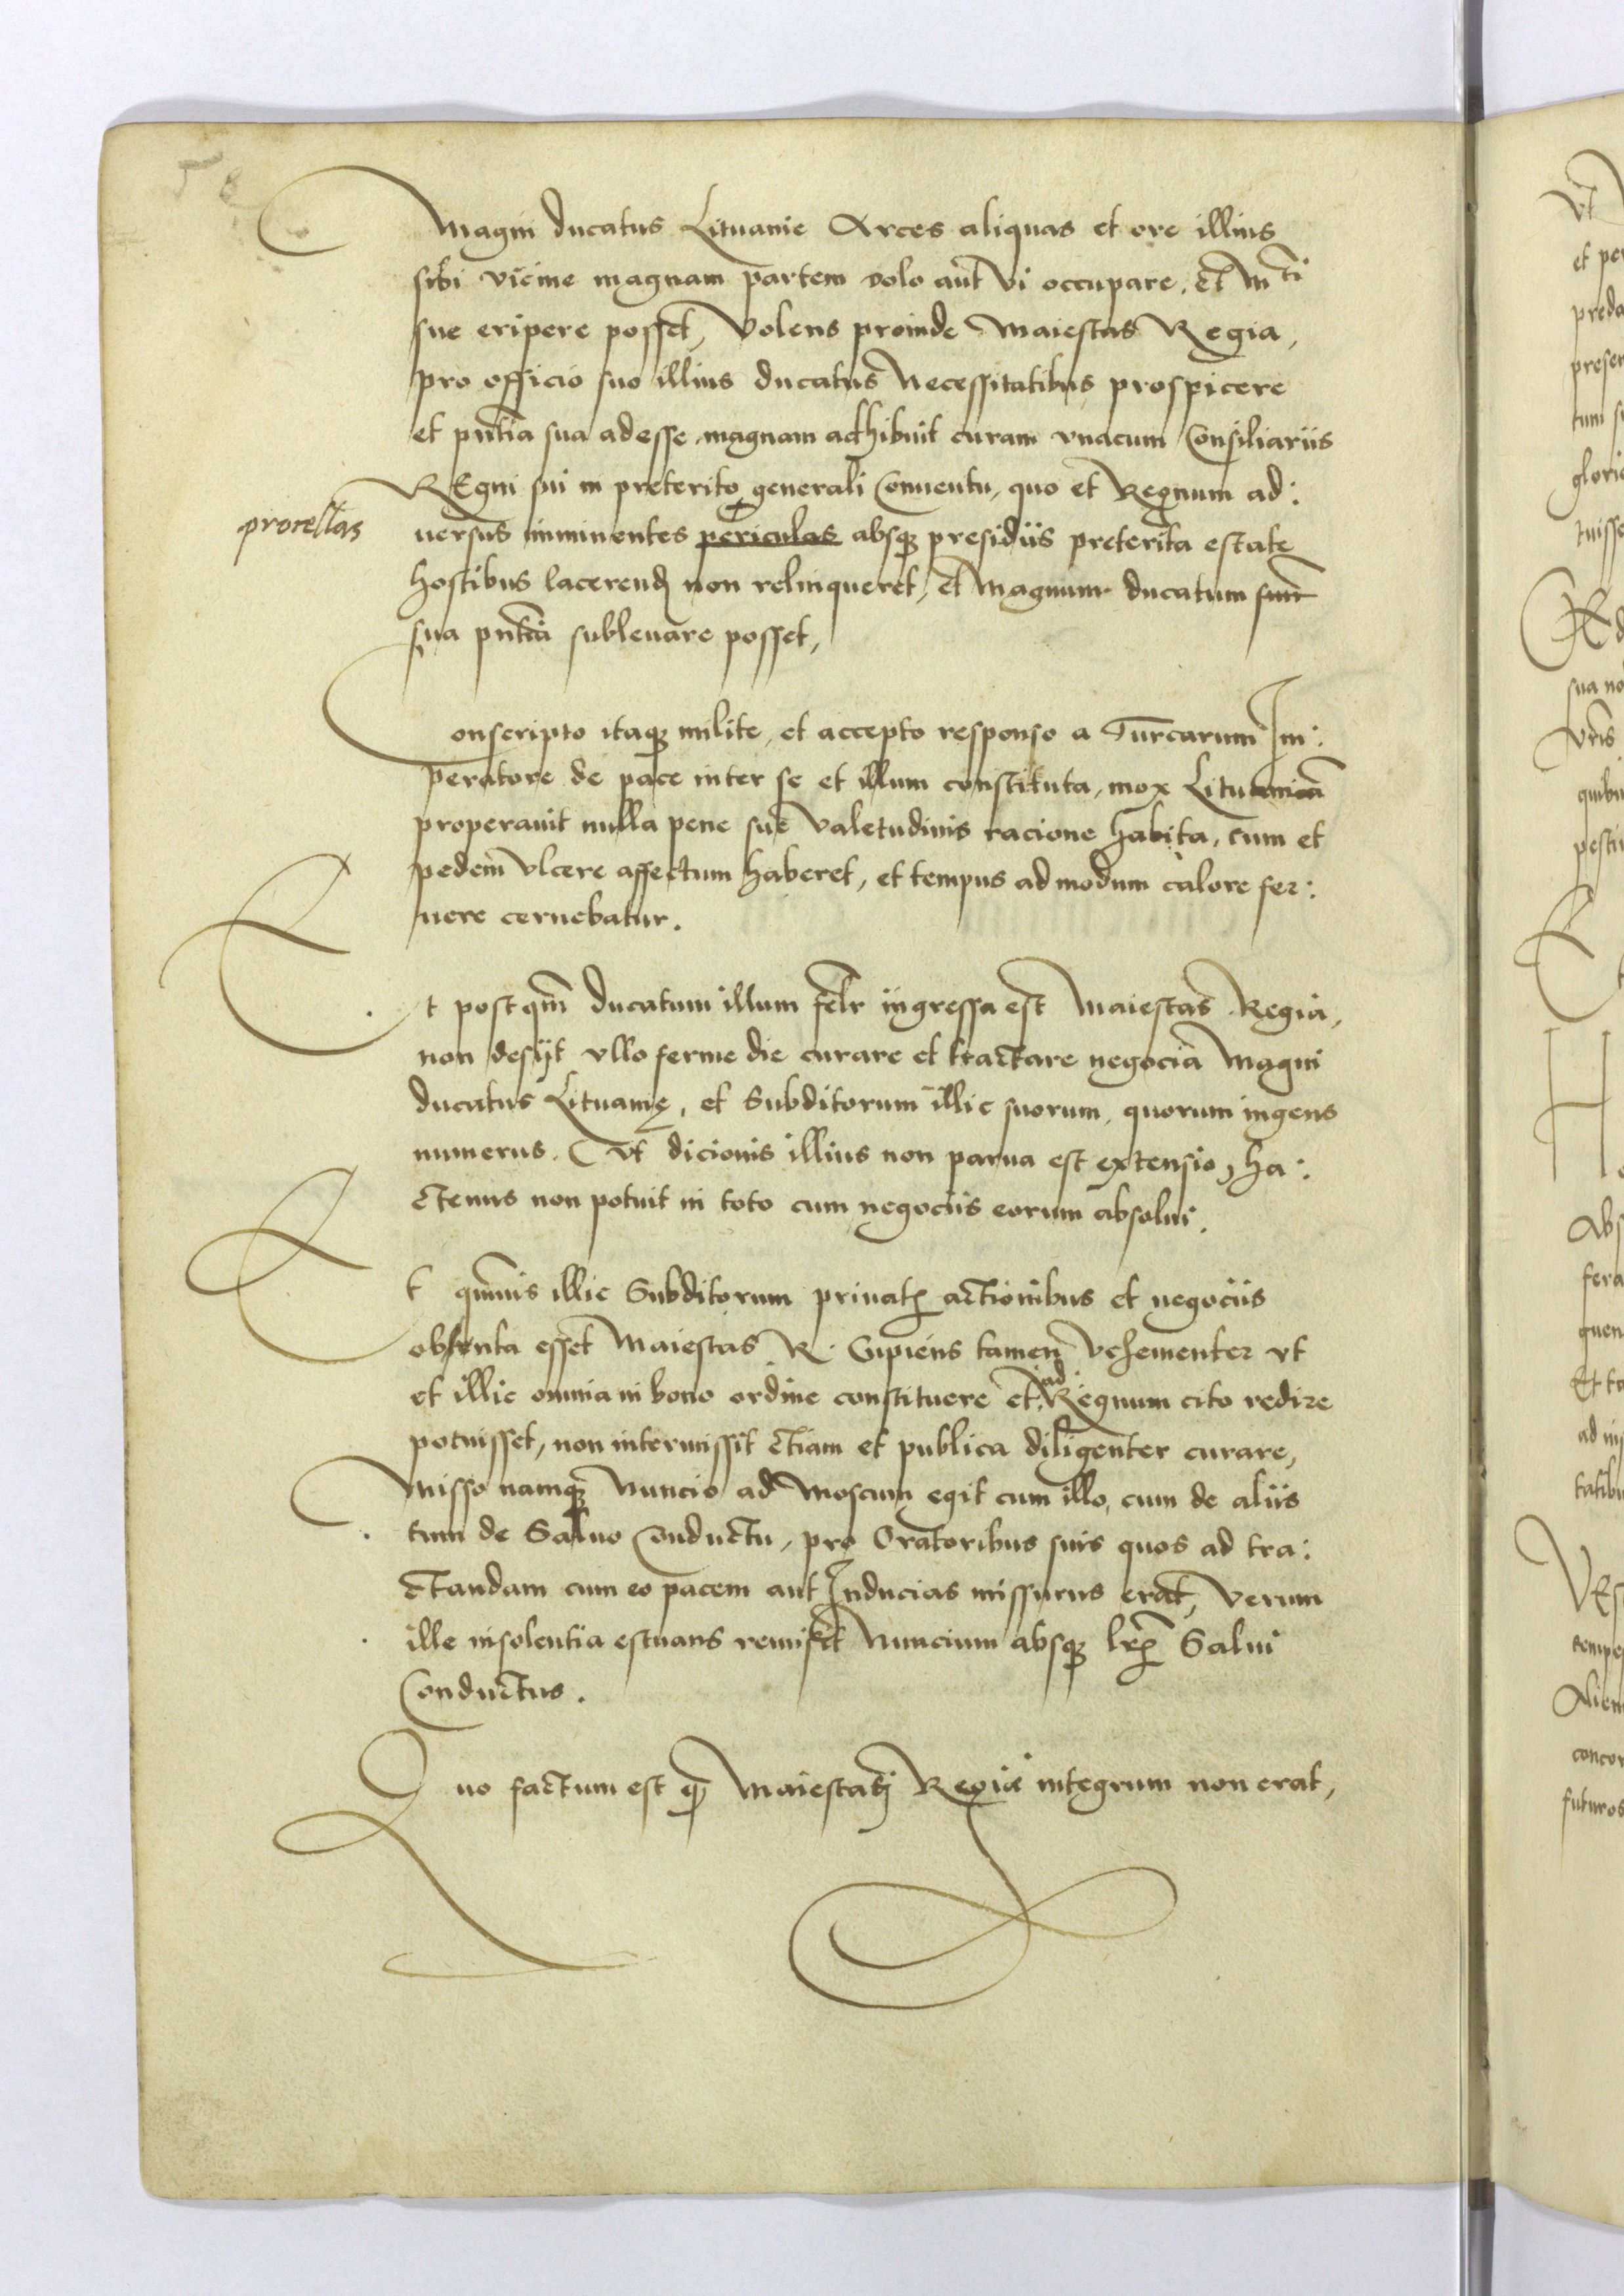 58
Magni ducatus Lituanie Arces aliquas et ore illius
sibi vicine magnam partem dolo aut vi occupare, et Mti
sue eripere posset, Volens proinde Maiestas Regia,
pro officio suo illius ducatus Necessitatibus prospicere
et pntia sua adesse magnam adhibuit curam vnacum Consiliariis
REgni sui in preterito generali Conuentu, quo et Regnum ad:
procellas
uersus imminentes periculas absq presidiis preterita estate
hostibus lacerend non relinqueret, et Magnum ducatum suum
sua pntia subleuare posset,
Conscripto itaq milite, et accepto responso a Turcarum Im:
peratore de pace inter se et illum constituta, mox Lituaniam
properauit nulla pene sue valetudinis racione habita, cum et
pedem vlcere affectum haberet, et tempus admodum calore fer:
uere cernebatur.
Et postqm ducatum illum felr ingressa est Maiestas Regia,
non desijt vllo ferme die curare et tractare negocia Magni
ducatus Lituanię, et Subditorum illic suorum, quorum ingens
numerus. (vt dicionis illius non parua est extensio) ha:
ctenus non potuit in toto cum negociis eorum absolui.
Et qmuis illic Subditorum priuatis actionibus et negociis
obtenta esset Maiestas R. Cupiens tamen vehementer vt
et illic omnia in bono ordine constituere et ad Regnum cito redire
potuisset, non intermissit etiam et publica diligenter curare,
Misso namq Nuncio ad Moscum egit cum illo, cum de aliis
tum de Saluo Conductu, pro Oratoribus suis quos ad tra:
ctandam cum eo pacem aut Inducias missurus erat, verum
ille insolentia estuans remisit Nuncium absq lris Salui
Conductus.
Quo factum est q Maiestati Regie integrum non erat,